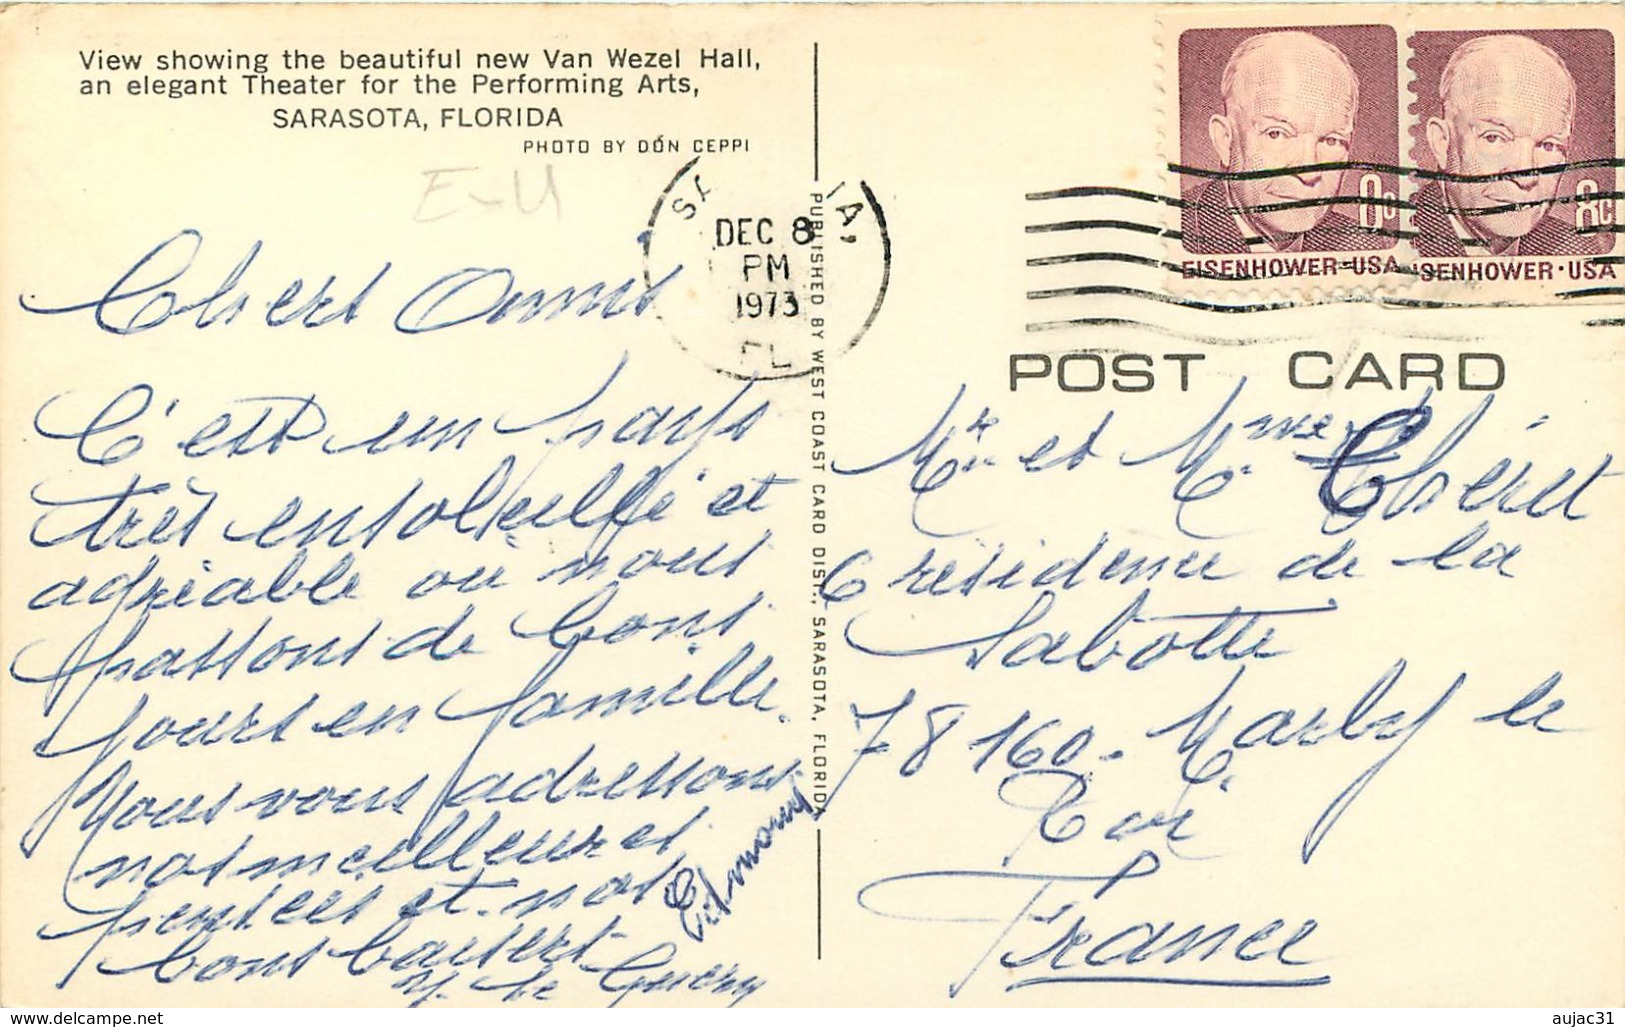 View showing the beautiful new Van Wezel Hall,
an elegant Theater for the Performing Arts,
SARASOTA, FLORIDA
PHOTO BY DON CEPPI
E-U
DEC 8
PM
1973
FL
EISENHOWER·USA
8c
EISENHOWER·USA
8c
POST CARD
PUBLISHED BY WEST COAST CARD DIST., SARASOTA, FLORIDA
Chers Amis
C'est un pays
très ensoleillé et
agréable où nous
passons de bons
jours en famille.
Nous vous adressons
nos meilleures
pensées et nos
bons baisers
Edmony
Mr et Mme Chéret
6 résidence de la
Sabotte
78160. Marly le
Roi
France
www.delcampe.net
aujac31